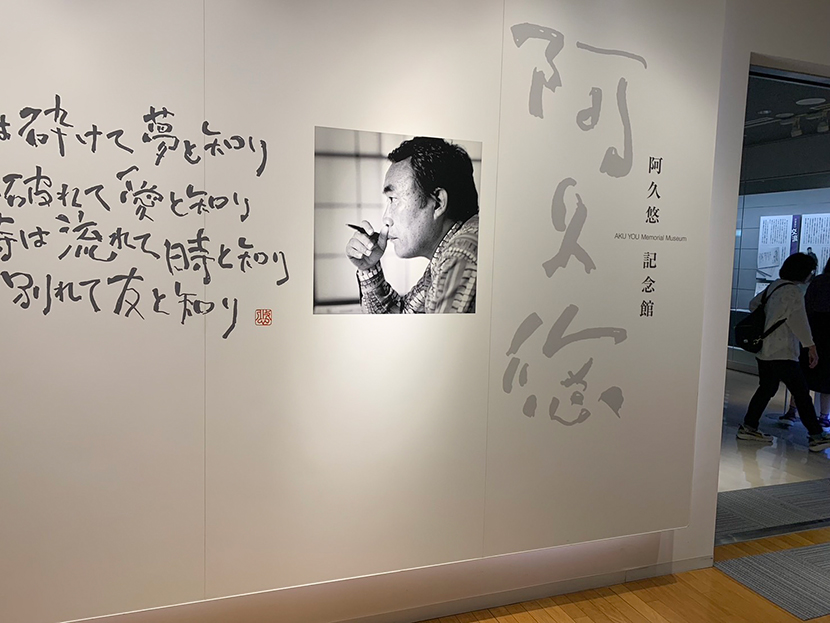 は砕けて夢と知り
破れて愛と知り
時は流れて時と知り
別れて友と知り
阿久悠
阿久悠
AKU YOU Memorial Museum
記念館
交流